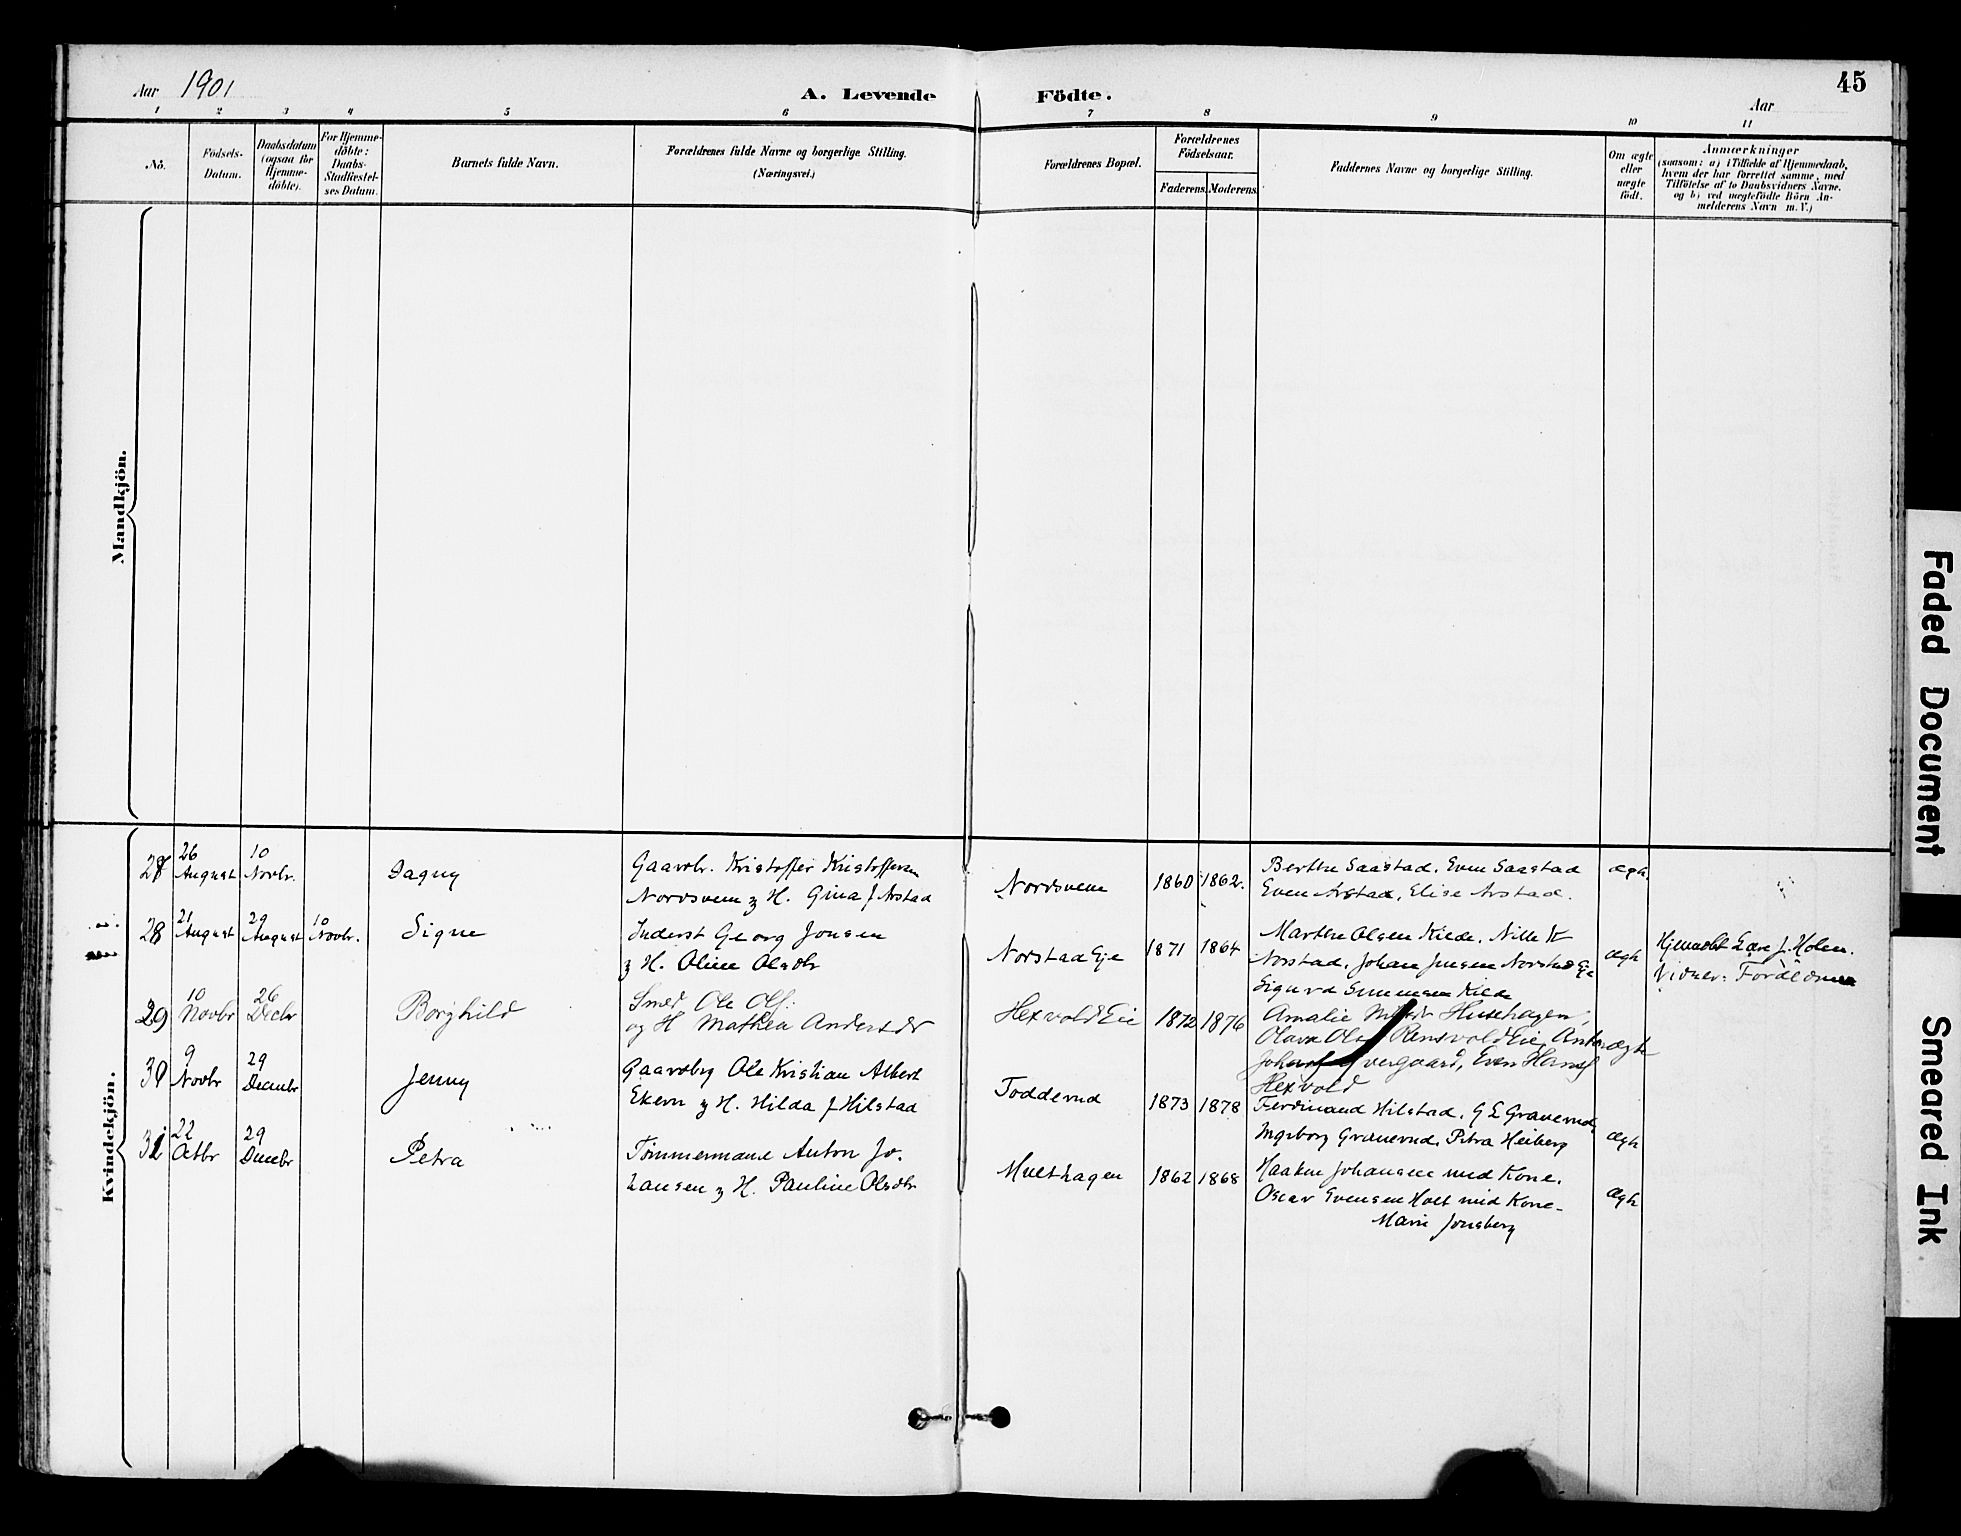 Aar 1901
A. Levende Födte.
Aar
45
1 2 3 4 5 6 7 8 9 10 11
No.
Födsels-
Datum.
Daabsdatum
(ogsaa for
Hjemme-
döbte).
For Hjemme-
döbte:
Daabs-
Stadfæstel-
ses Datum.
Barnets fulde Navn.
Forældrenes fulde Navne og borgerlige Stilling.
(Næringsvei.)
Forældrenes Bopæl.
Forældrenes
Födselsaar.
Faderens. Moderens.
Faddernes Navne og borgerlige Stilling.
Om ægte
eller
uægte
födt.
Anmærkninger
(saasom: a) i Tilfælde af Hjemmedaab,
hvem der har forrettet samme, med
Tilföielse af to Daabsvidners Navne,
og b) ved uægtefödte Börn An-
melderens Navn m. V.)
Mandkjön.
Kvindekjön.
27
26
August
10
Novbr.
Dagny
Gaardbr. Kristoffer Kristoffersen
Nordsveen & H. Gina f. Arstad
Nordsveen
1860 1862.
Berthe Saastad. Even Saastad
Even Arstad, Elise Arstad.
ægh.
28
21
August
29
August
10
Novbr.
Signe
Inderst Georg Jonsen
& H. Oline Olsdtr
Norstad Eje
1871 1864
Marthe Olsen Kilde. Nille K
Norstad. Johan Jensen Norstad Eje
Sigurd Simensen Kilde
ægh
Hjemdøbt Lære J. Holen.
Vidner: Forældrene
29
10
Novbr
26
Decbr
Borghild
Smed Ole Ols.
og H Mathea Andersdr
Hexvold Eie
1872 1876
Amalie Husehagen,
Olava Rensvold Eie, Anton
Johans Overgaard, Even Hans
Hexvold
ægte
30
9
Novbr
29
Decembr
Jenny
Gaardbrg Ole Kristian Albert
Ekern & H. Hilda f. Hilstad
Todderud
1873 1878
Ferdinand Hilstad. G E Græverud.
Ingeborg Græverud. Petra Heiberg
ægh
31
22
Octbr
29
Decebr
Petra
Tømmermand Anton Jo-
hansen & H. Pauline Olsdtr
Hulthagen
1862 1868
Haaken Johansen med Kone.
Oscar Evensen Holt med Kone-
Marie Jonsberg
ægh
Faded Document
Smeared Ink